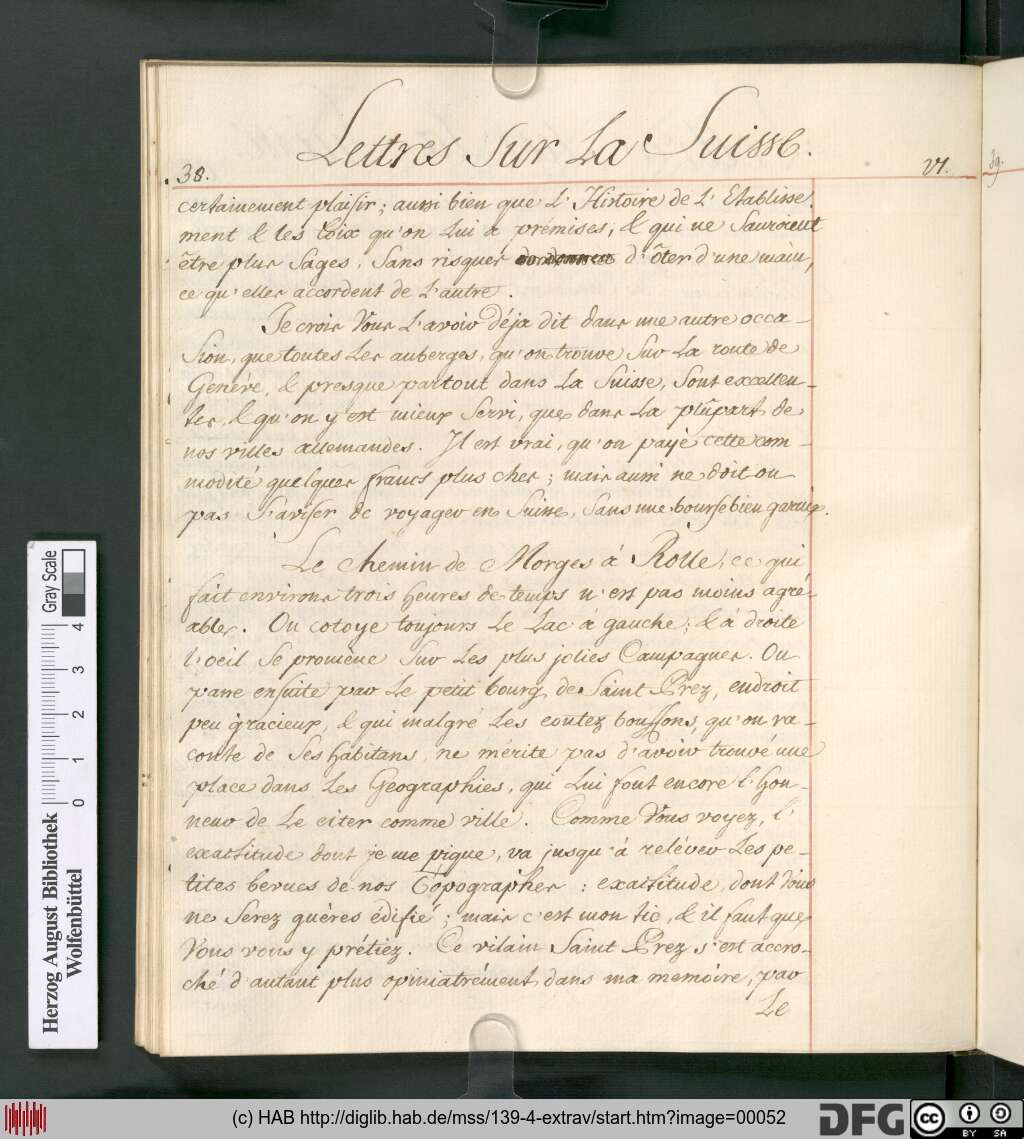 Lettres Sur La Suisse.
38.
VI.
39.
certainement plaisir; aussi bien que L'Histoire de L'Etablisse-
ment & les Loix qu'on Lui a prémises, & qui ne Sauroient
être plus Sages, Sans risquer d'ôter d'une main,
ce qu'elles accordent de L'autre.
Je crois Vous L'avoir déja dit dans une autre occa-
sion, que toutes Les auberges, qu'on trouve Sur La route de
Genève, & presque partout dans La Suisse, Sont excellen-
tes, & qu'on y est mieux Servi, que dans La plûpart de
nos villes allemandes. Il est vrai, qu'on paye cette com-
modité quelques francs plus cher; mais aussi ne doit on
pas S'aviser de voyager en Suisse, Sans une bourse bien garnie.
Le chemin de Morges à Rolle, ce qui
fait environs trois heures de temps n'est pas moins agré-
able. On cotoye toujours Le Lac à gauche; & à droite
l'oeil Se promène Sur Les plus jolies Campagnes. On
passe ensuite par Le petit bourg de Saint Prez, endroit
peu gracieux, & qui malgré Les contez bouffons, qu'on ra-
conte de Ses habitans, ne mérite pas d'avoir trouvé une
place dans Les Geographies, qui Lui font encore l'hon-
neur de Le citer comme ville. Comme Vous voyez, l'
exactitude dont je me pique, va jusqu'à reléver Les pe-
tites bevues de nos Topographes: exactitude, dont Vous
ne Serez guères édifié; mais c'est mon tic, & il faut que
Vous vous y prétiez. Ce vilain Saint Prez s'est accro-
ché d'autant plus opiniatrément dans ma memoire, par
Le
Herzog August Bibliothek
Wolfenbüttel
0 1 2 3 4
Gray Scale
(c) HAB http://diglib.hab.de/mss/139-4-extrav/start.htm?image=00052
DFG
cc BY SA